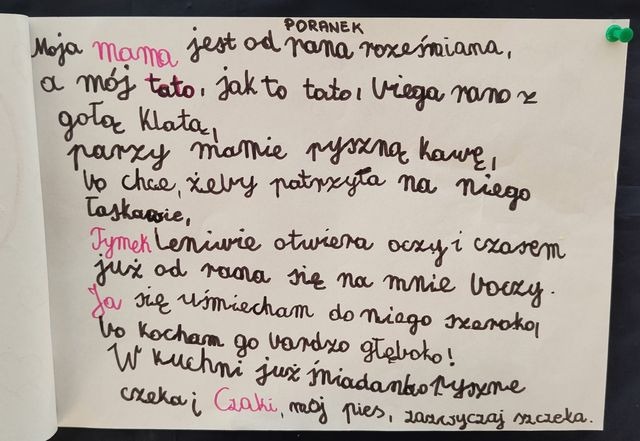 PORANEK
Moja mama jest od rana roześmiana,
a mój tato, jak to tato, biega rano z
gołą klatą,
parzy mamie pyszną kawę,
bo chce, żeby patrzyła na niego
łaskawie,
Tymek leniwie otwiera oczy i czasem
już od rana się na mnie boczy.
Ja się uśmiecham do niego szeroko,
bo kocham go bardzo głęboko!
W kuchni już śniadanko pyszne
czeka i Czaki, mój pies, zazwyczaj szczeka.